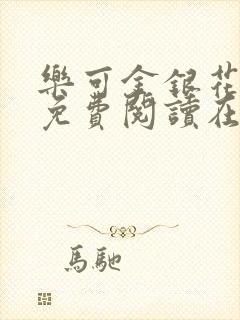 樂可金銀花
免費閱讀在
馬馳